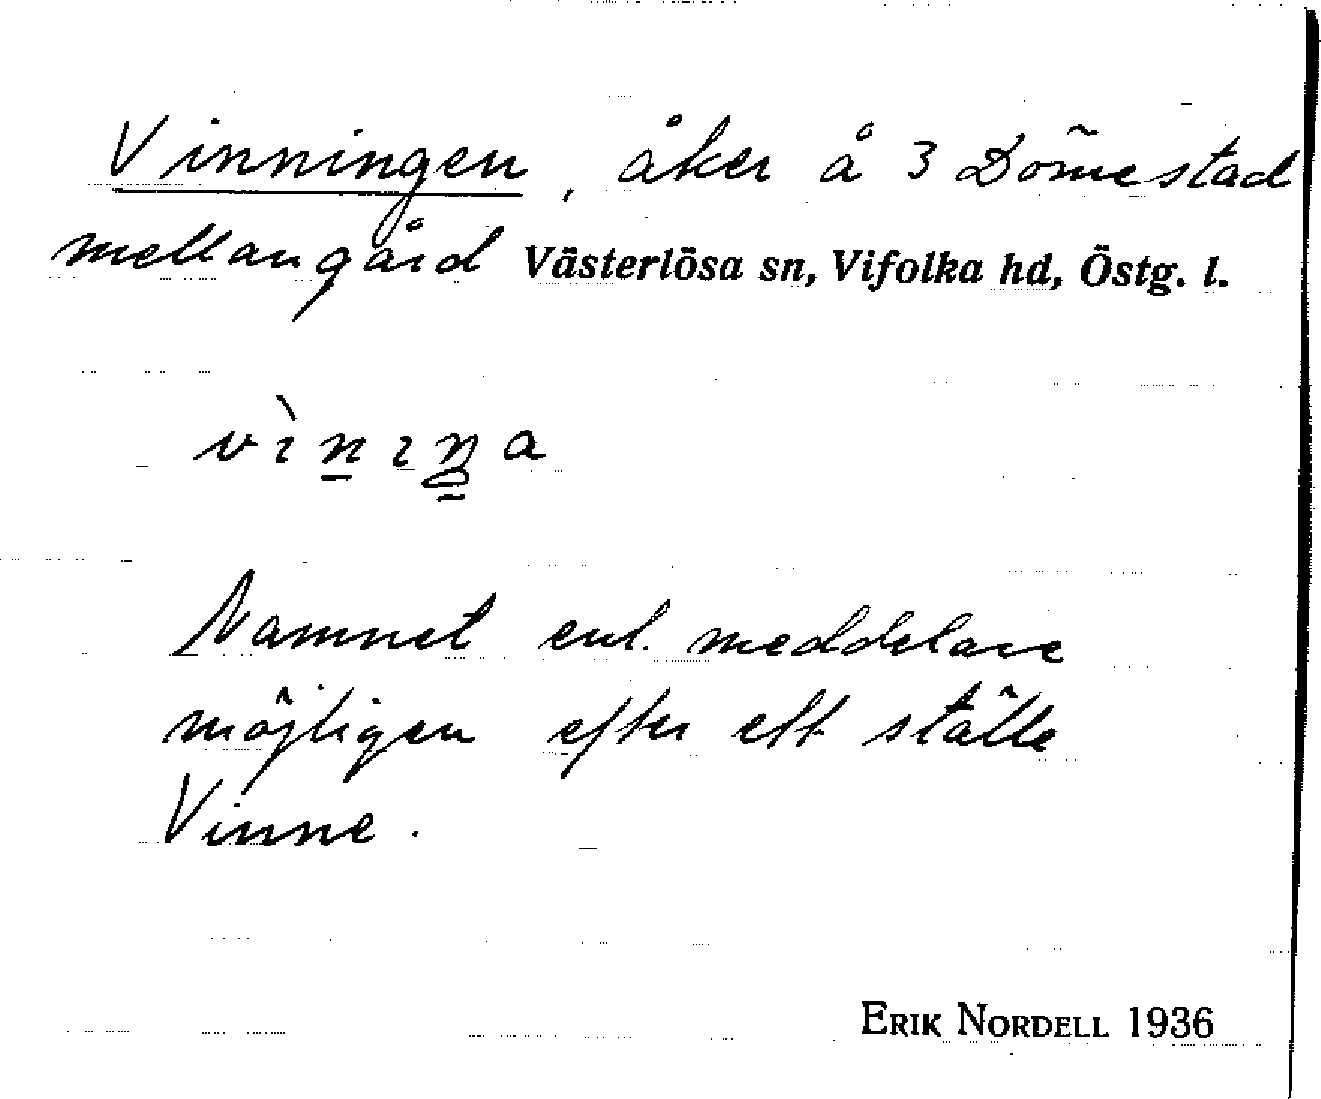 Vinningen, åker å 3 Dömestad
mellangård Västerlösa sn, Vifolka hd, Östg. l.
vìnıŋa
Namnet enl. meddelare
möjligen efter ett ställe
Vinne.
ERIK NORDELL 1936